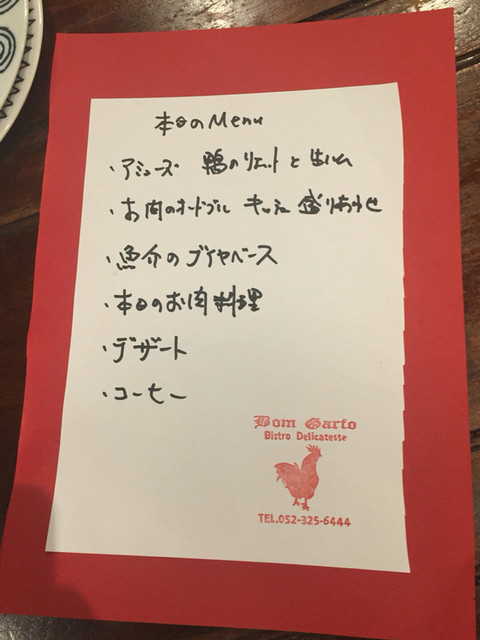 本日のMenu
・アミューズ 鴨のリエットと生ハム
・お肉のオードブル キッシュ 盛りあわせ
・魚介のブイヤベース
・本日のお肉料理
・デザート
・コーヒー
Bom Garfo
Bistro Delicatesse
TEL.052-325-6444